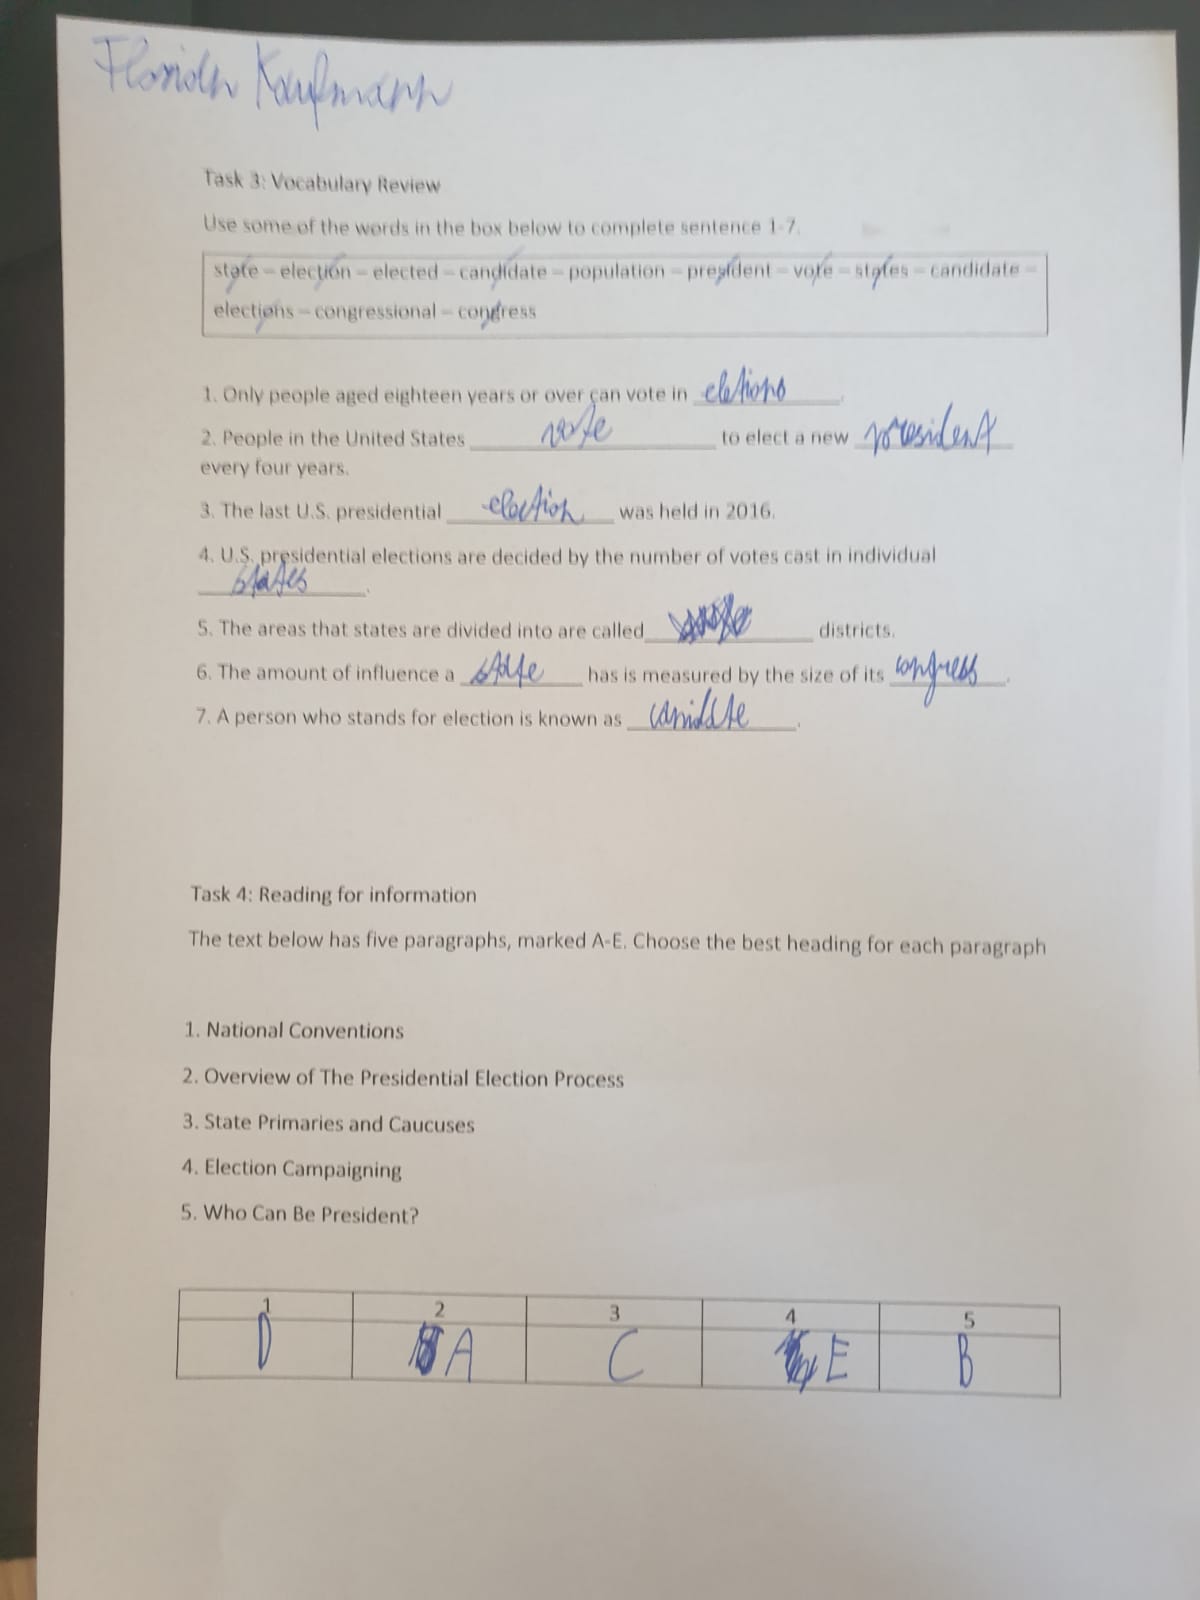 Florian Kaufmann
Task 3: Vocabulary Review
Use some of the words in the box below to complete sentence 1-7.
state – election – elected – candidate – population – president – vote – states – candidate –
elections – congressional – congress
1. Only people aged eighteen years or over can vote in eletions.
2. People in the United States vote to elect a new president
every four years.
3. The last U.S. presidential election was held in 2016.
4. U.S. presidential elections are decided by the number of votes cast in individual
states.
5. The areas that states are divided into are called districts.
6. The amount of influence a state has is measured by the size of its congress.
7. A person who stands for election is known as .
Task 4: Reading for information
The text below has five paragraphs, marked A-E. Choose the best heading for each paragraph
1. National Conventions
2. Overview of The Presidential Election Process
3. State Primaries and Caucuses
4. Election Campaigning
5. Who Can Be President?
1 2 3 4 5
D A C E B